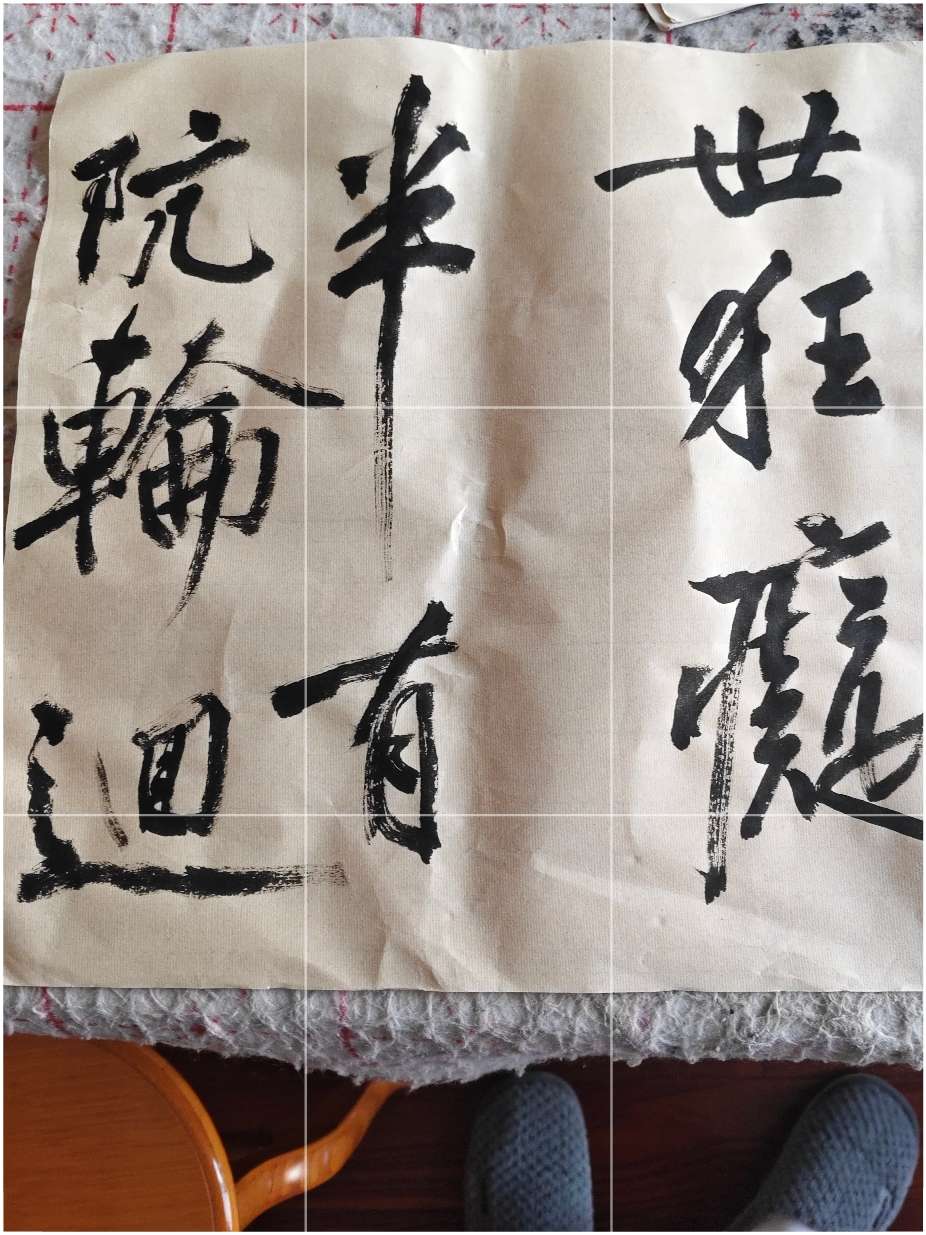 世狂癡
半有
阮輪迴